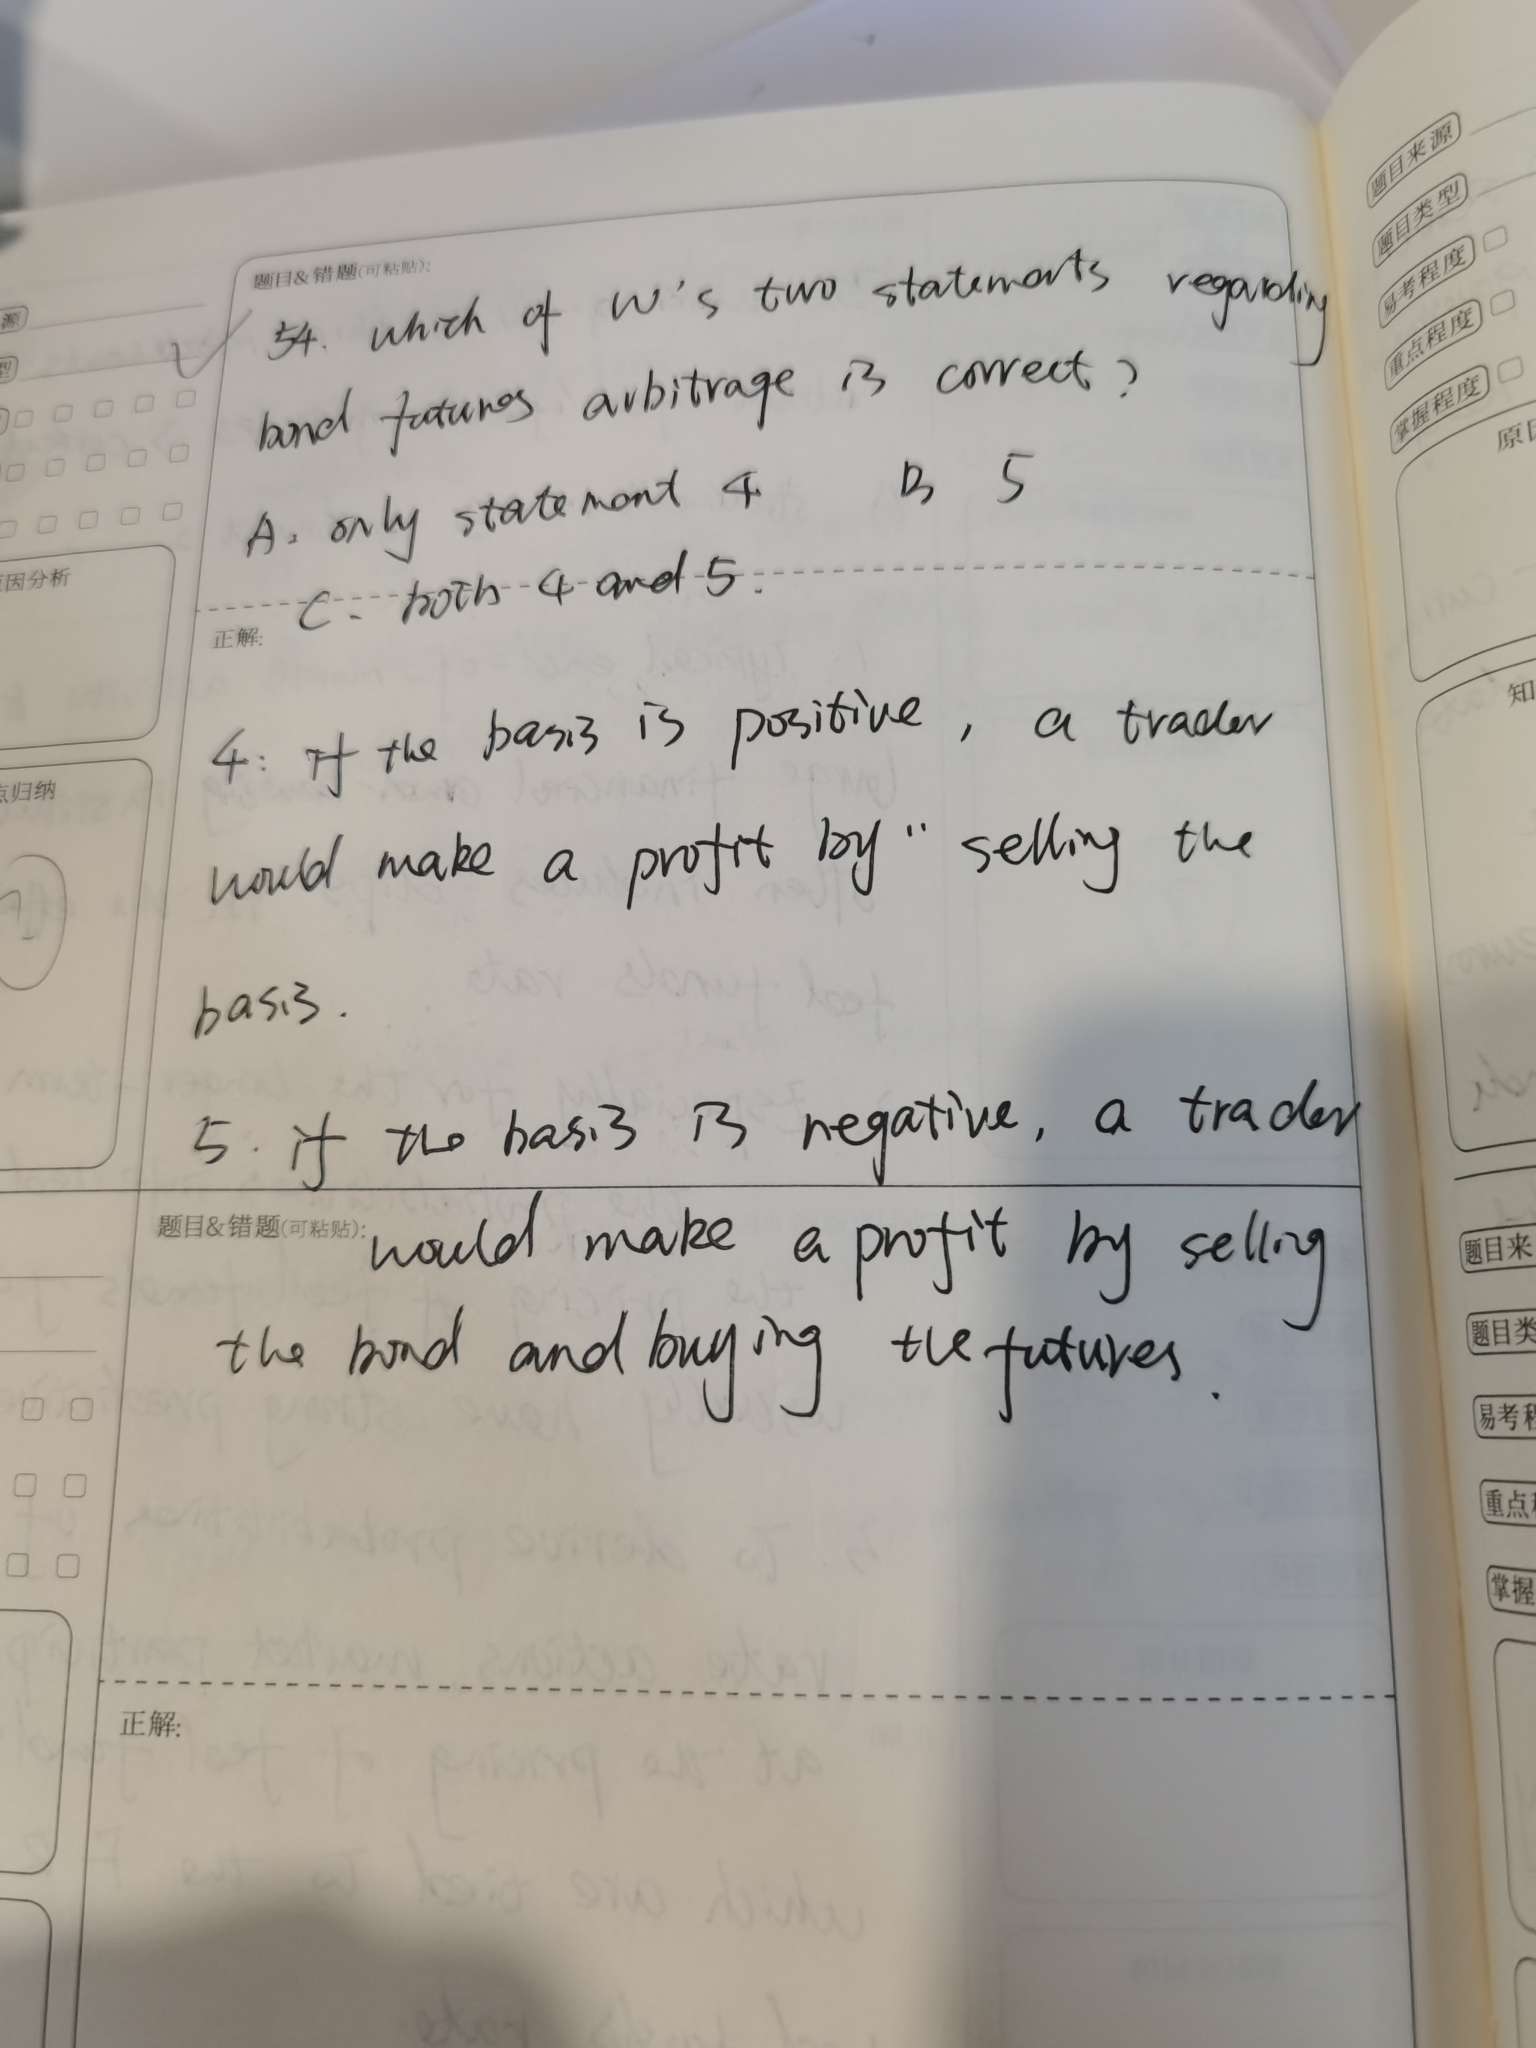 题目&错题(可粘贴):
54. which of W's two statements regarding
bond futures arbitrage is correct?
A. only statement 4 B 5
C. both 4 and 5.
正解:
4: if the basis is positive, a trader
would make a profit by " selling the
basis.
5. if the basis is negative, a trader
题目&错题(可粘贴):
would make a profit by selling
the bond and buying the futures.
正解:
源
型
原因分析
点归纳
题目来源
题目类型
易考程度
重点程度
掌握程度
原因
知
题目来
题目类
易考程
重点程
掌握